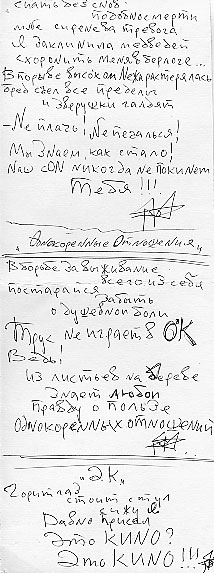 спать без снов:
подобно смерти
мне сиренева тревога
я заклинила медведей
схоронить меня в берлоге...
В порыве высоком Не характерялась
бред съел все пределы
и зверушки галдят
-Не плачь! Не печалься!
Мы знаем, как стало!
Наш сон никогда не покинет
Тебя!!!
"Однокоренные Отношения"
В борьбе за выживание
всего из себя
постарайся забыть
о душевной боли
Трюк не играет в ОК
Ведь!
из листьев на дереве
знает любой
правду о пользе
однокоренных отношений
"ЭК"
Горит гад
стоит стул
сижу я
Давно присел
Это КИНО?
Это КИНО!!!